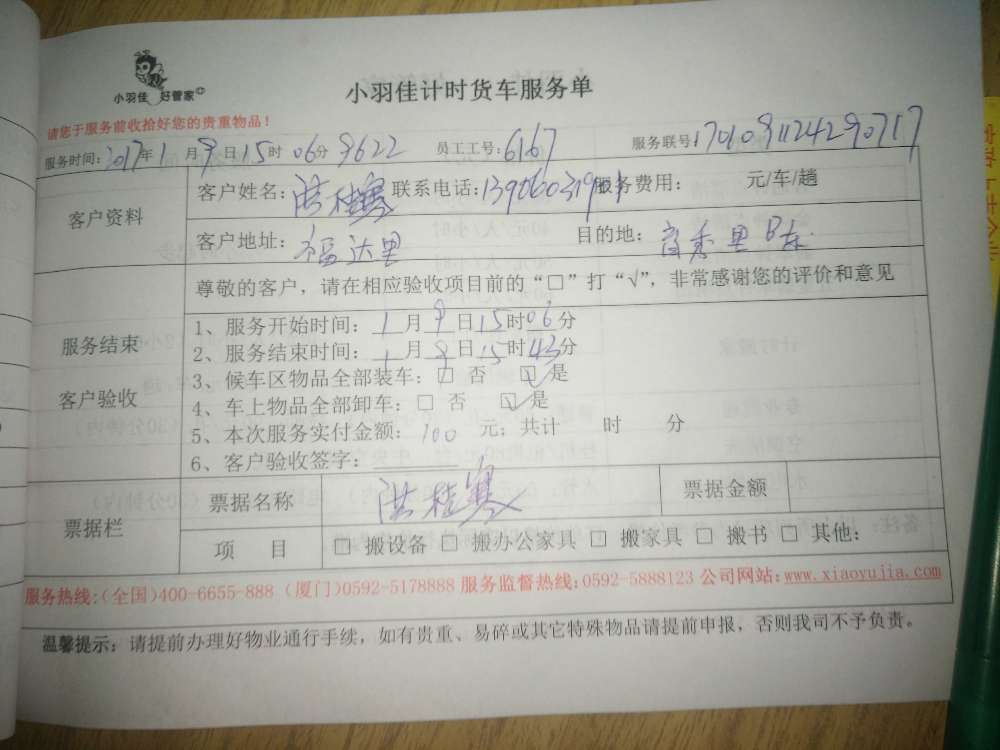 小羽佳 好管家
小羽佳计时货车服务单
请您于服务前收拾好您的贵重物品！
服务时间：2017年1月9日15时06分 9622 员工工号：6167 服务联号：1701091124290717
客户资料
客户姓名：洪桂 联系电话： 服务费用： 元/车/趟
客户地址：福达里 目的地：
尊敬的客户，请在相应验收项目前的“□”打“√”，非常感谢您的评价和意见
服务结束
客户验收
1、服务开始时间：1月9日15时06分
2、服务结束时间：1月9日15时43分
3、候车区物品全部装车：□ 否 ☑ 是
4、车上物品全部卸车：□ 否 ☑ 是
5、本次服务实付金额：100 元；共计 时 分
6、客户验收签字：
洪桂
票据栏
票据名称 票据金额
项 目 □ 搬设备 □ 搬办公家具 □ 搬家具 □ 搬书 □ 其他：
服务热线：(全国)400-6655-888 (厦门)0592-5178888 服务监督热线：0592-5888123 公司网站：www.xiaoyujia.com
温馨提示：请提前办理好物业通行手续，如有贵重、易碎或其它特殊物品请提前申报，否则我司不予负责。